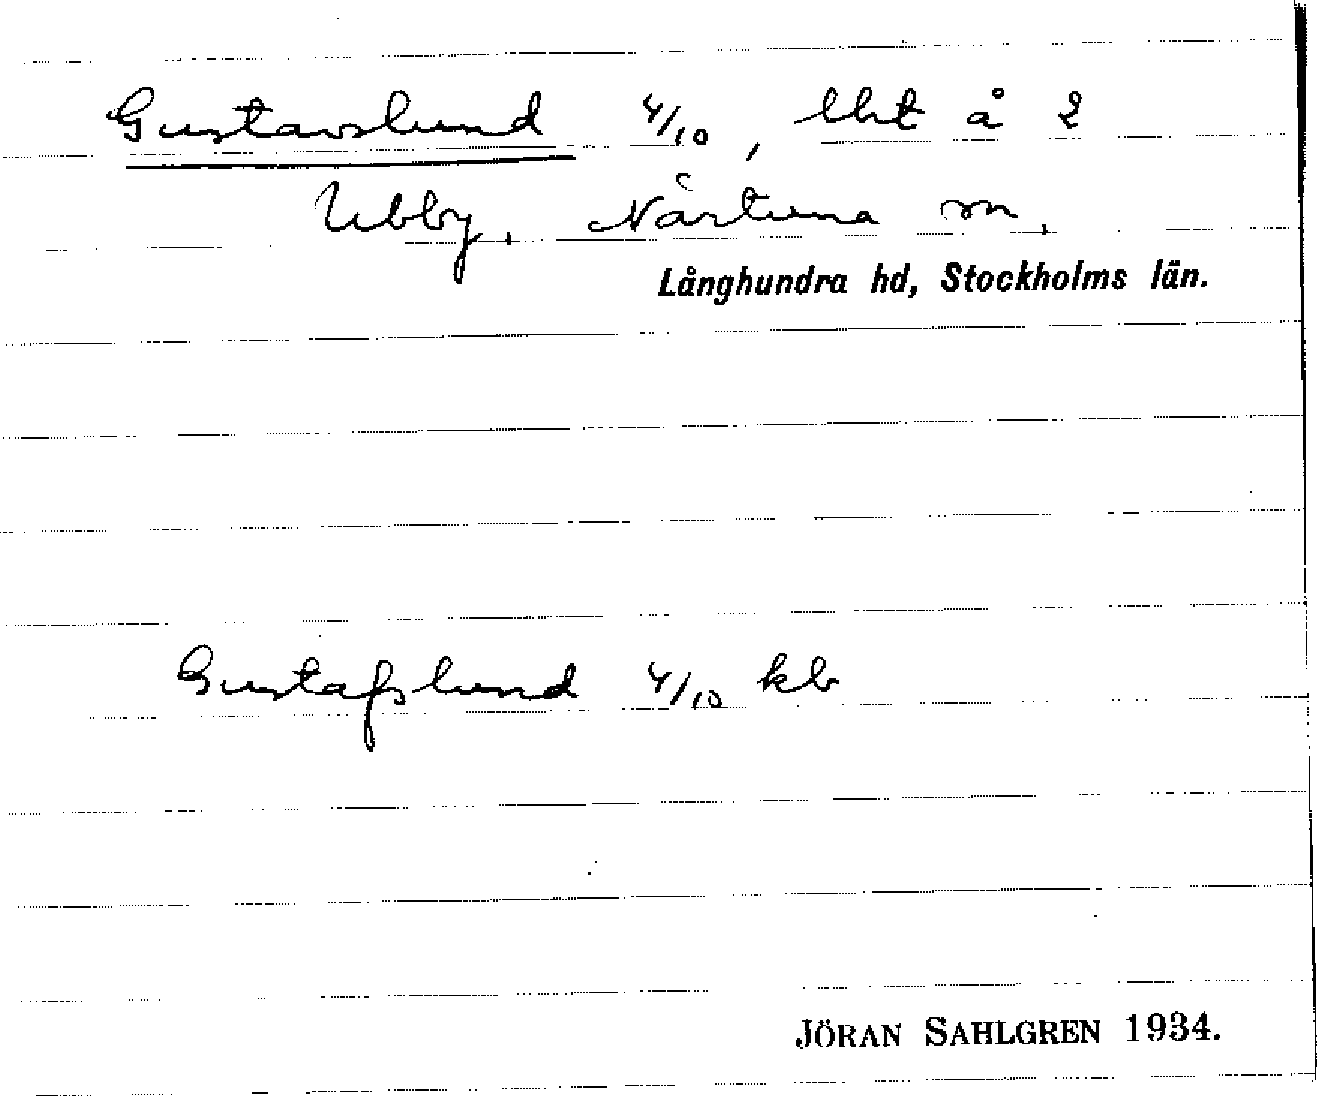 Gustavslund 4/10, lht å 2
Ubby, Närtuna sn,
Långhundra hd, Stockholms län.
Gustafslund 4/10 kb
JÖRAN SAHLGREN 1934.